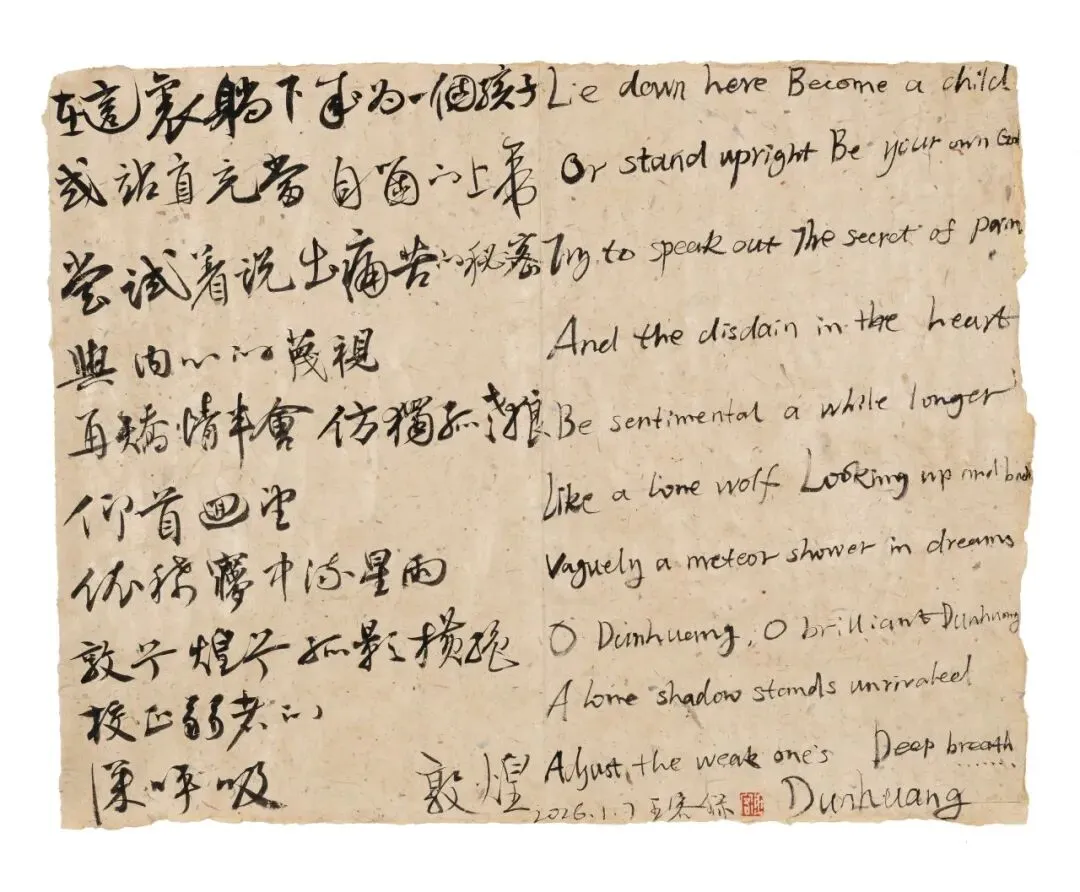 在這裏躺下成为一個孩子
或站直充當自箇的上帝
尝试着说出痛苦的秘密
與内心的蔑視
再矯情半會 仿獨孤蒼狼
仰首迴望
依稀夢中流星雨
敦兮煌兮孤影横絕
校正弱者的
深呼吸
敦煌
Lie down here Become a child
Or stand upright Be your own God
Try to speak out The secret of pain
And the disdain in the heart
Be sentimental a while longer
Like a lone wolf Looking up and back
Vaguely a meteor shower in dreams
O Dunhuang, O brilliant Dunhuang
A lone shadow stands unrivaled
Adjust the weak one's Deep breath ......
2026.1.7 Dunhuang